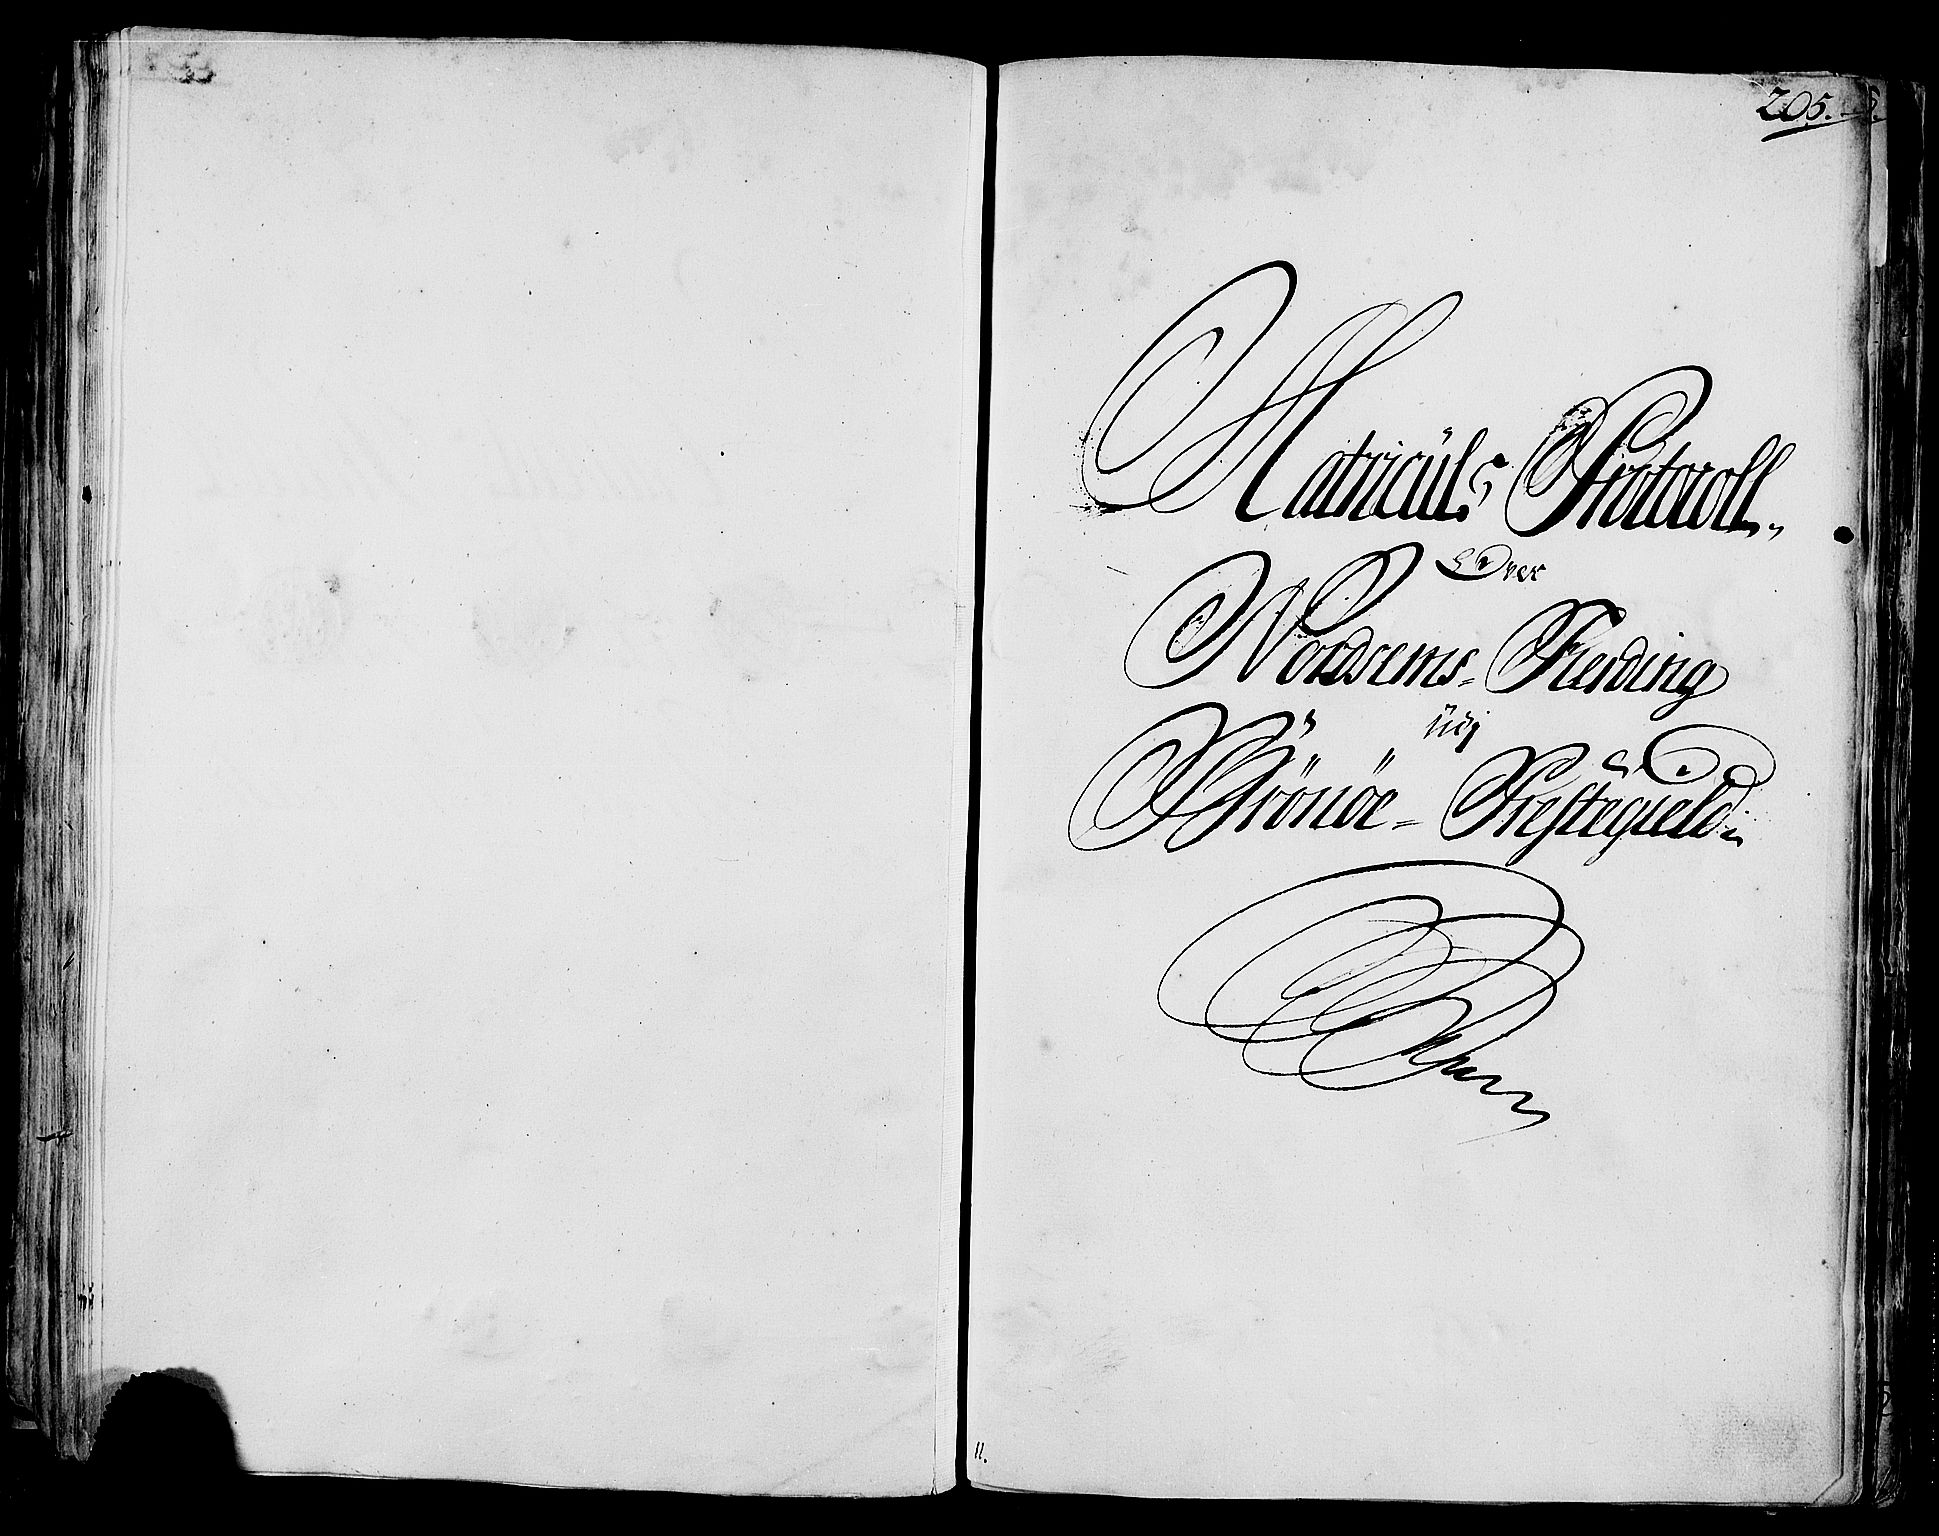 205.
Matriculs Protocoll.
Over
Nordrems- Fierding
udj
Brönöe- Præstegield.
11.